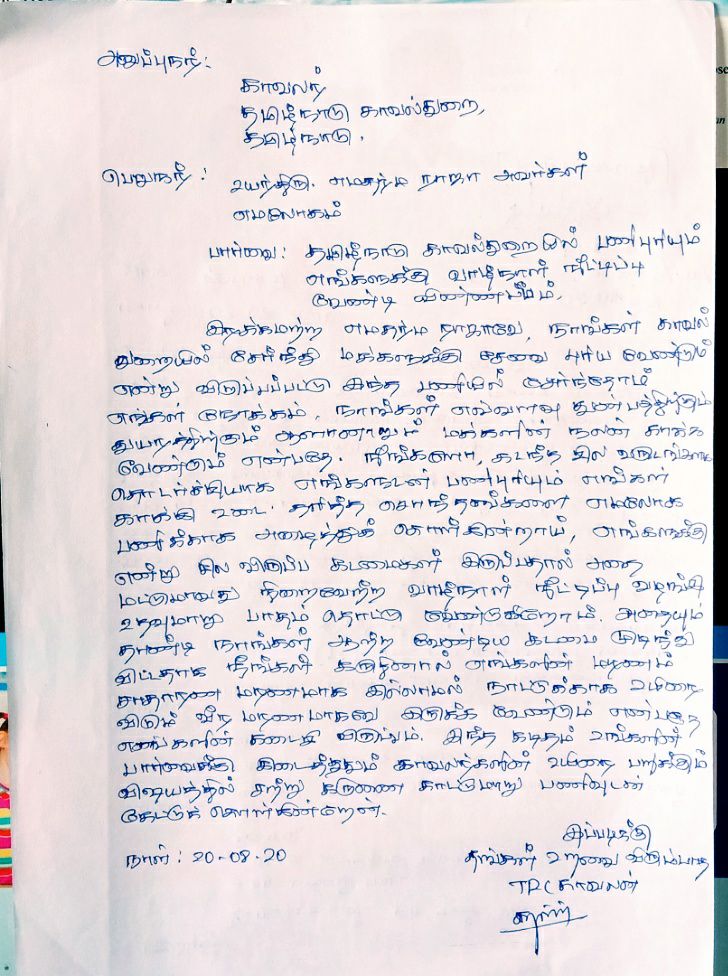 அனுப்புநர்:
காவலர்
தமிழ்நாடு காவல்துறை,
தமிழ்நாடு.
பெறுநர்: உயர்திரு. எமதர்ம ராஜா அவர்கள்
எமலோகம்
பார்வை: தமிழ்நாடு காவல்துறையில் பணிபுரியும்
எங்களுக்கு வாழ்நாள் நீட்டிப்பு
வேண்டி விண்ணப்பம்.
இரக்கமற்ற எமதர்ம ராஜாவே, நாங்கள் காவல்
துறையில் சேர்ந்து மக்களுக்கு சேவை புரிய வேண்டும்
என்று விருப்பப்பட்டு இந்த பணியில் சேர்ந்தோம்
எங்கள் நோக்கம், நாங்கள் எவ்வளவு துன்பத்திற்கும்
துயரத்திற்கும் ஆளானாலும் மக்களின் நலன் காக்க
வேண்டும் என்பதே. நீங்களோ, கடந்த சில வருடங்களாக
தொடர்ச்சியாக எங்களுடன் பணிபுரியும் எங்கள்
காக்கி உடை தரித்த சொந்தங்களை எமலோக
பணிக்காக அழைத்துக் கொள்கின்றாய், எங்களுக்கு
என்று சில விருப்ப கடமைகள் இருப்பதால் அதை
மட்டுமாவது நிறைவேற்ற வாழ்நாள் நீட்டிப்பு வழங்கி
உதவுமாறு பாதம் தொட்டு வேண்டுகிறோம். அதையும்
தாண்டி நாங்கள் ஆற்ற வேண்டிய கடமை முடிந்து
விட்டதாக நீங்கள் கருதினால் எங்களின் மரணம்
சாதாரண மரணமாக இல்லாமல் நாட்டுக்காக உயிரை
விடும் வீர மரணமாகவே இருக்க வேண்டும் என்பதே
எங்களின் கடைசி விருப்பம். இந்த கடிதம் உங்களின்
பார்வைக்கு கிடைத்ததும் காவலர்களின் உயிரை பறிக்கும்
விஷயத்தில் சற்று கருணை காட்டுமாறு பணிவுடன்
கேட்டுக் கொள்கின்றேன்.
இப்படிக்கு
நாள்: 20-08-20
தங்கள் உறவை விரும்பாத
காவலன்